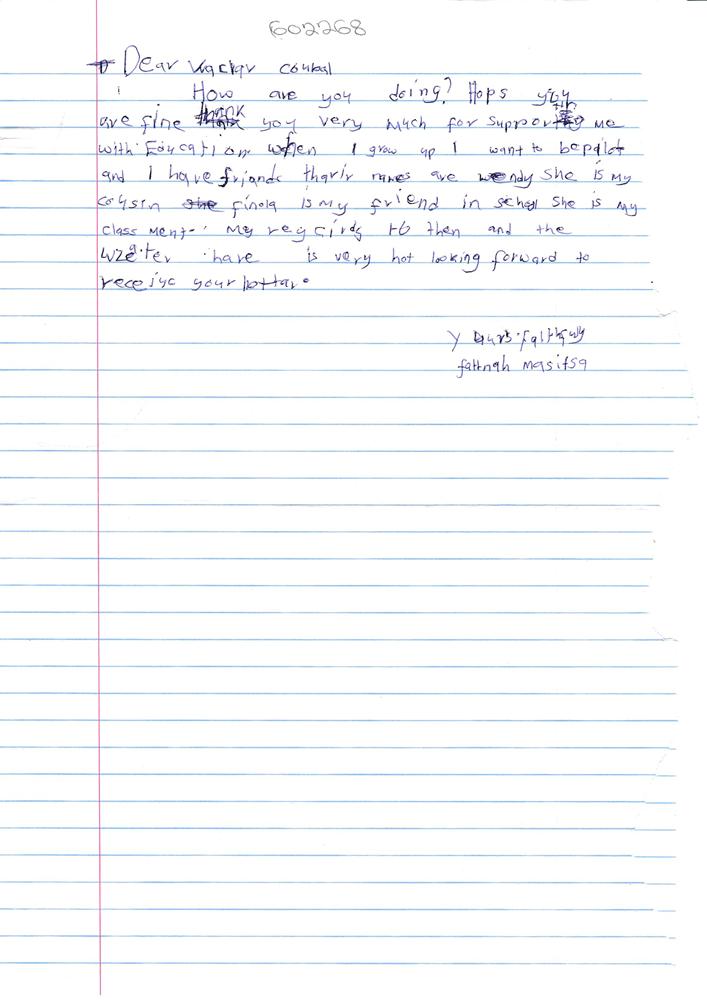 602268
Dear Vaclav coubal
How are you doing? Hops you
are fine thank you very much for supporting me
with Education when I grow up I want to be pilot
and I have friends tharir names are wendy she is my
cousin she finola is my friend in school she is my
class ment. My regcirds to then and the
wzeter have is very hot looking forward to
receive your lottar.
Yours faithfuly
fatinah masitsa